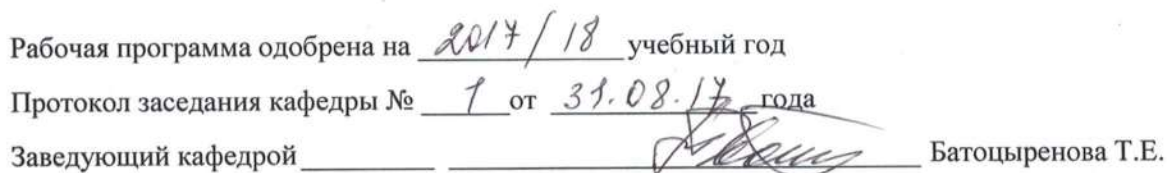 Рабочая программа одобрена на 2017/18 учебный год
Протокол заседания кафедры № 1 от 31.08.17 года
Заведующий кафедрой Батоцыренова Т.Е.